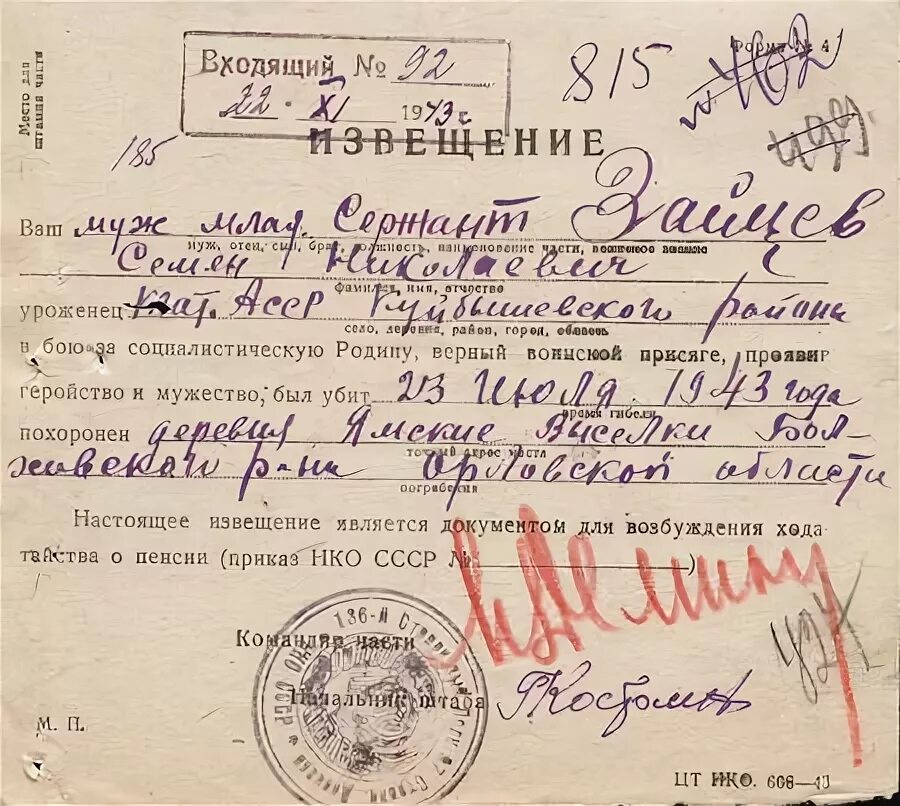 Место для
штампа части
Входящий № 92
22 · XI 1943 г
815
Форма № 4
№ 402
185
ИЗВЕЩЕНИЕ
Ваш муж млад. Сержант Зайцев
муж, отец, сын, брат, должность, наименование части, воинское звание
Семен Николаевич
фамилия, имя, отчество
уроженец Тат. АССР Куйбышевского района
село, деревня, район, город, область
в бою за социалистическую Родину, верный воинской присяге, проявив
геройство и мужество, был убит 23 Июля 1943 года
время гибели
похоронен деревня Ямские Выселки Бол-
точный адрес места
ховского р-на Орловской области
погребения
Настоящее извещение является документом для возбуждения хода-
тайства о пенсии (приказ НКО СССР № )
Командир части
136-й Стрелк
Начальник штаба
М. П.
ЦТ НКО. 608—43